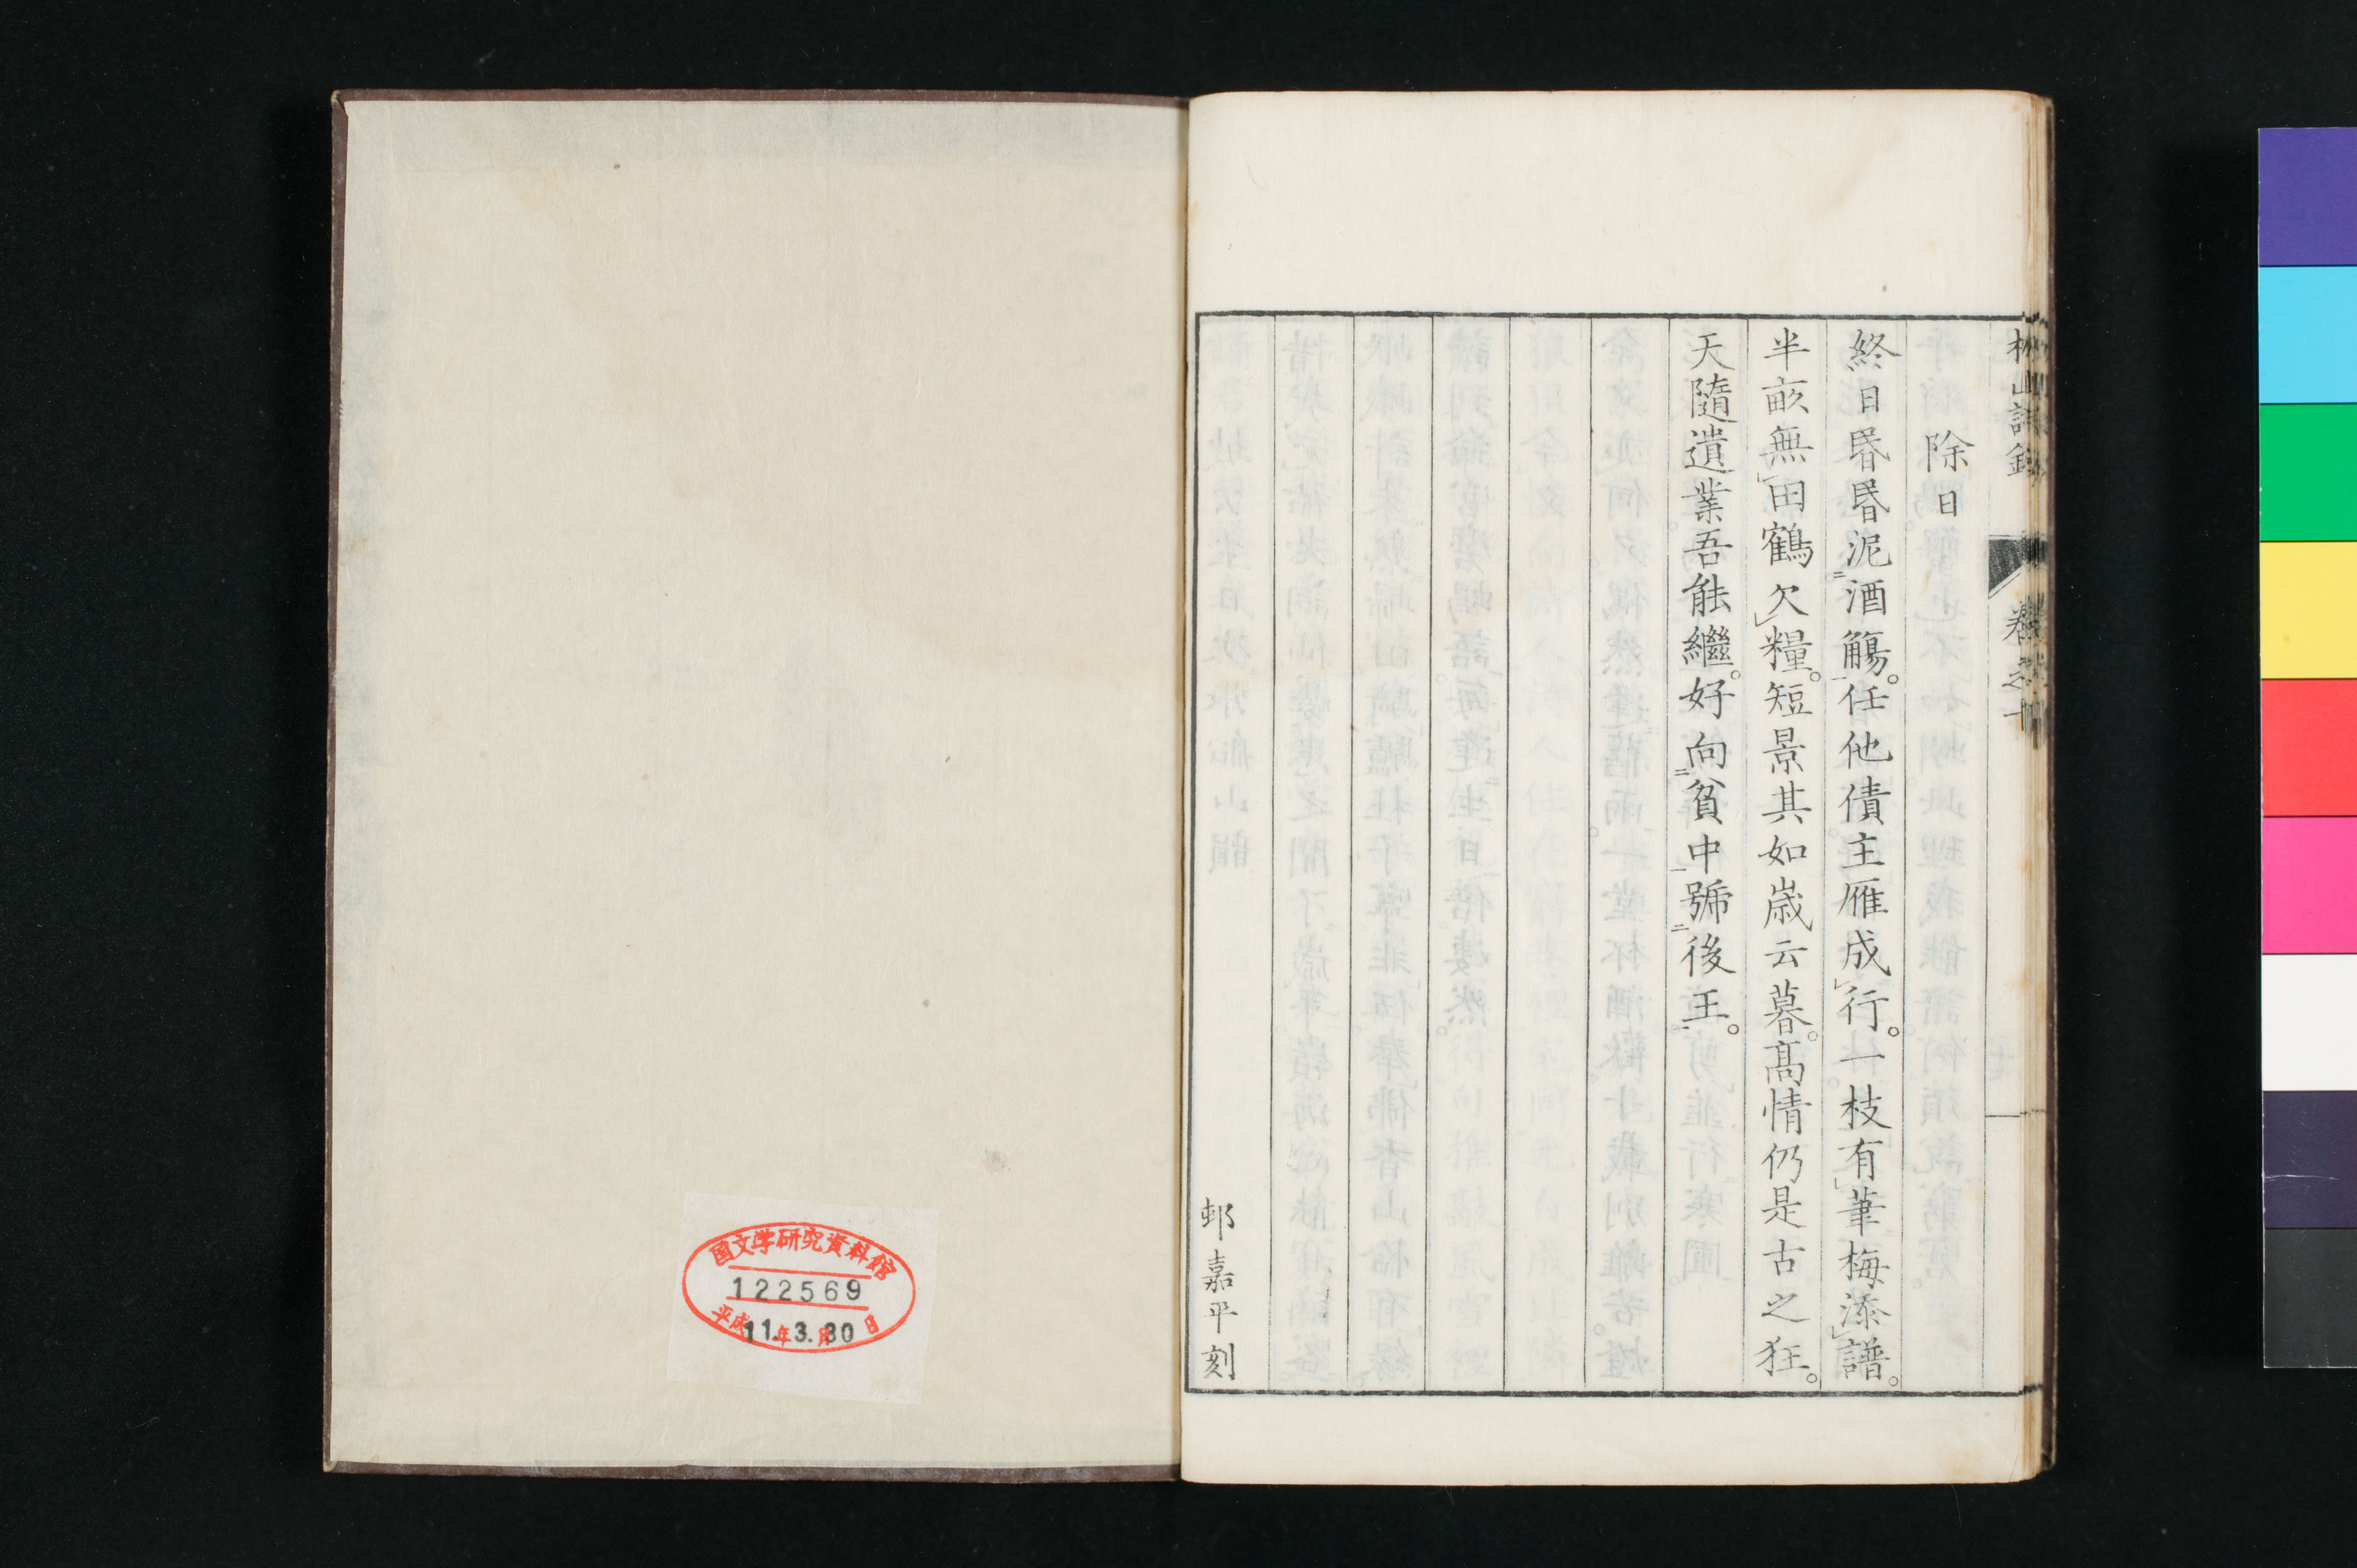 除日
終日昬昬泥酒觴。任他債主雁成行。一枝有筆梅添譜。
半畝無田鶴欠糧。短景其如歳云暮。髙情仍是古之狂。
天隨遺業吾能繼。好向貧中號後王。
邨嘉平刻
山詩鈔
卷之十
国文学研究資料館
122569
平成11年3月30日